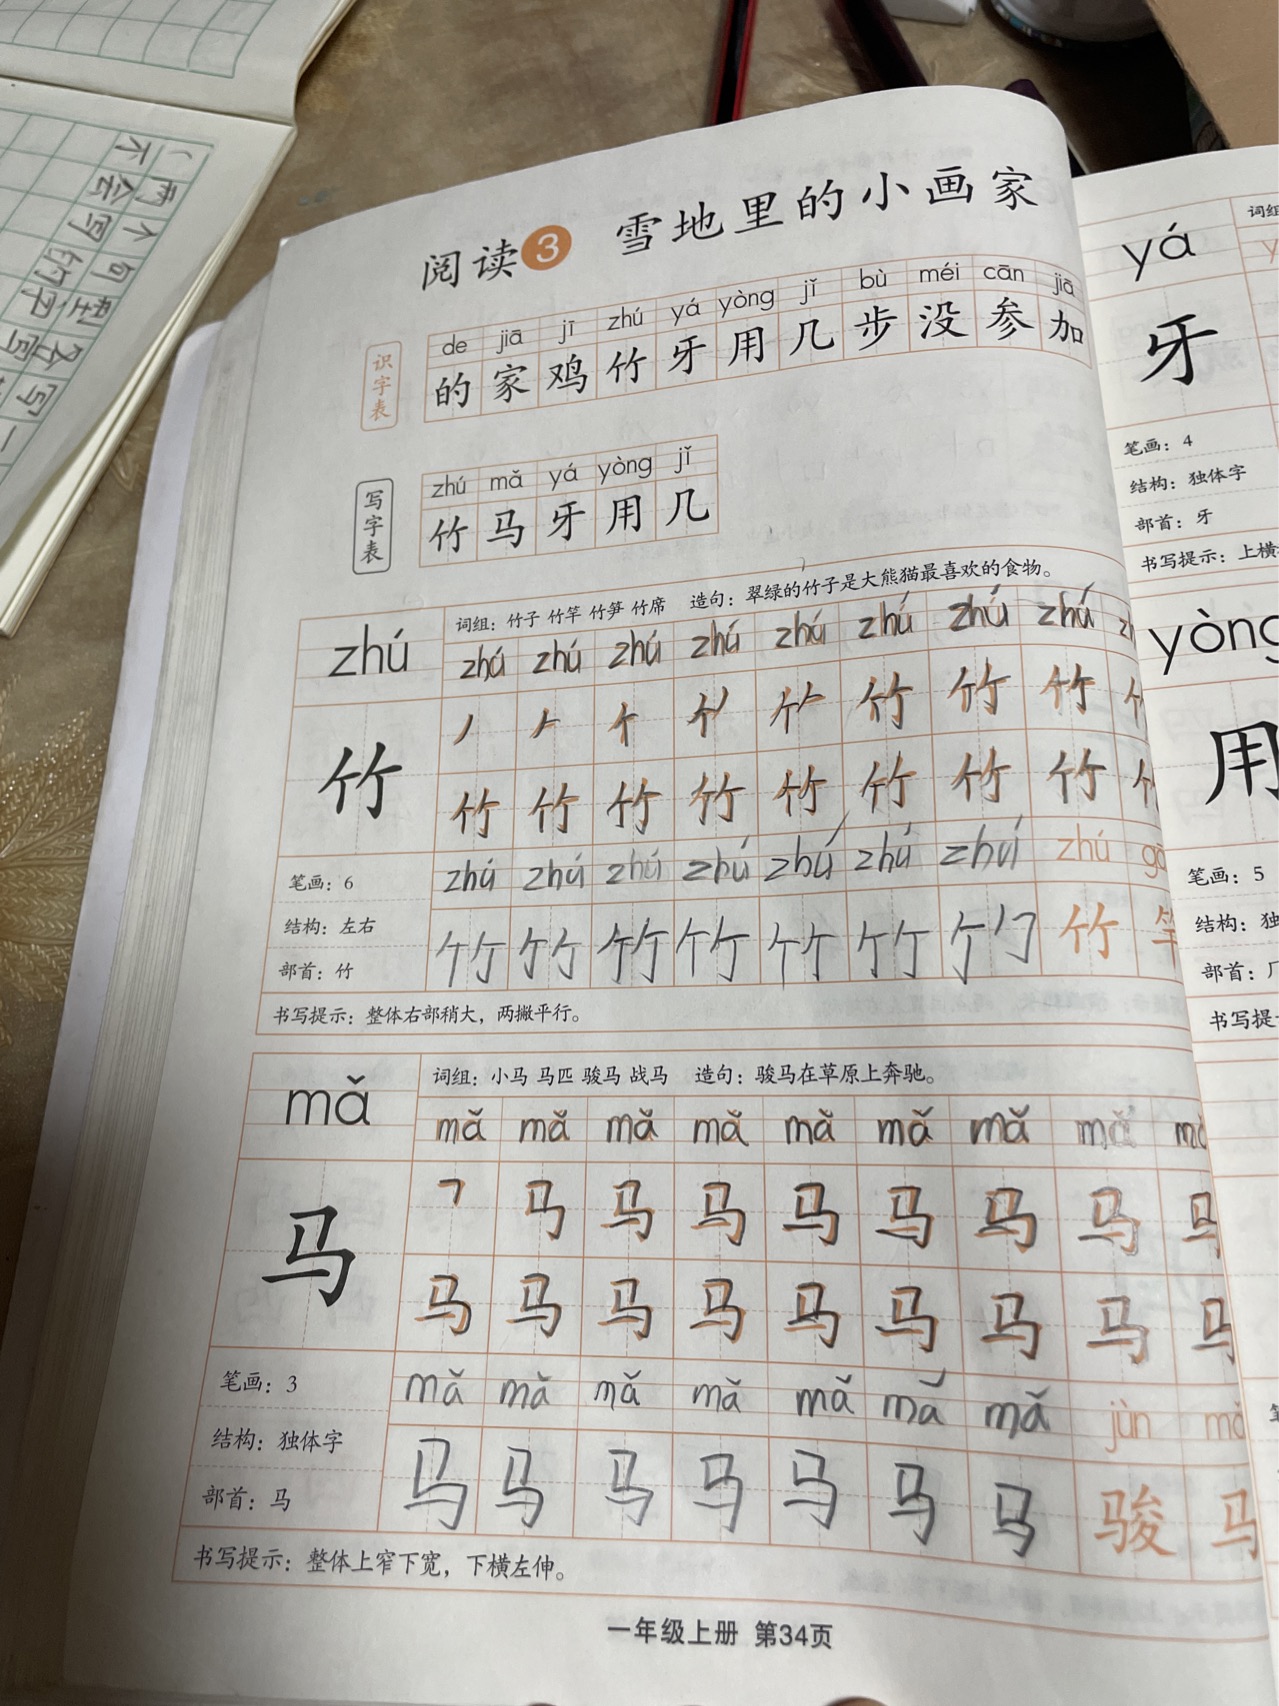 阅读3 雪地里的小画家
识字表
de jiā jī zhú yá yòng jǐ bù méi cān jiā
的 家 鸡 竹 牙 用 几 步 没 参 加
写字表
zhú mǎ yá yòng jǐ
竹 马 牙 用 几
zhú
词组：竹子 竹竿 竹笋 竹席 造句：翠绿的竹子是大熊猫最喜欢的食物。
zhú zhú zhú zhú zhú zhú zhú zhú
竹
竹 竹 竹
竹 竹 竹 竹 竹 竹 竹 竹
笔画：6
zhú zhú zhú zhú zhú zhú zhú zhú
结构：左右
竹 竹 竹 竹 竹 竹 竹 竹
部首：竹
书写提示：整体右部稍大，两撇平行。
mǎ
词组：小马 马匹 骏马 战马 造句：骏马在草原上奔驰。
mǎ mǎ mǎ mǎ mǎ mǎ mǎ mǎ
马
马 马 马 马 马 马 马
马 马 马 马 马 马 马 马
笔画：3
mǎ mǎ mǎ mǎ mǎ mǎ mǎ jùn
结构：独体字
马 马 马 马 马 马 马 骏 马
部首：马
书写提示：整体上窄下宽，下横左伸。
一年级上册 第34页
yá
词组
牙
笔画：4
结构：独体字
部首：牙
书写提示：上横
yòng
用
笔画：5
结构：独
部首：
书写提